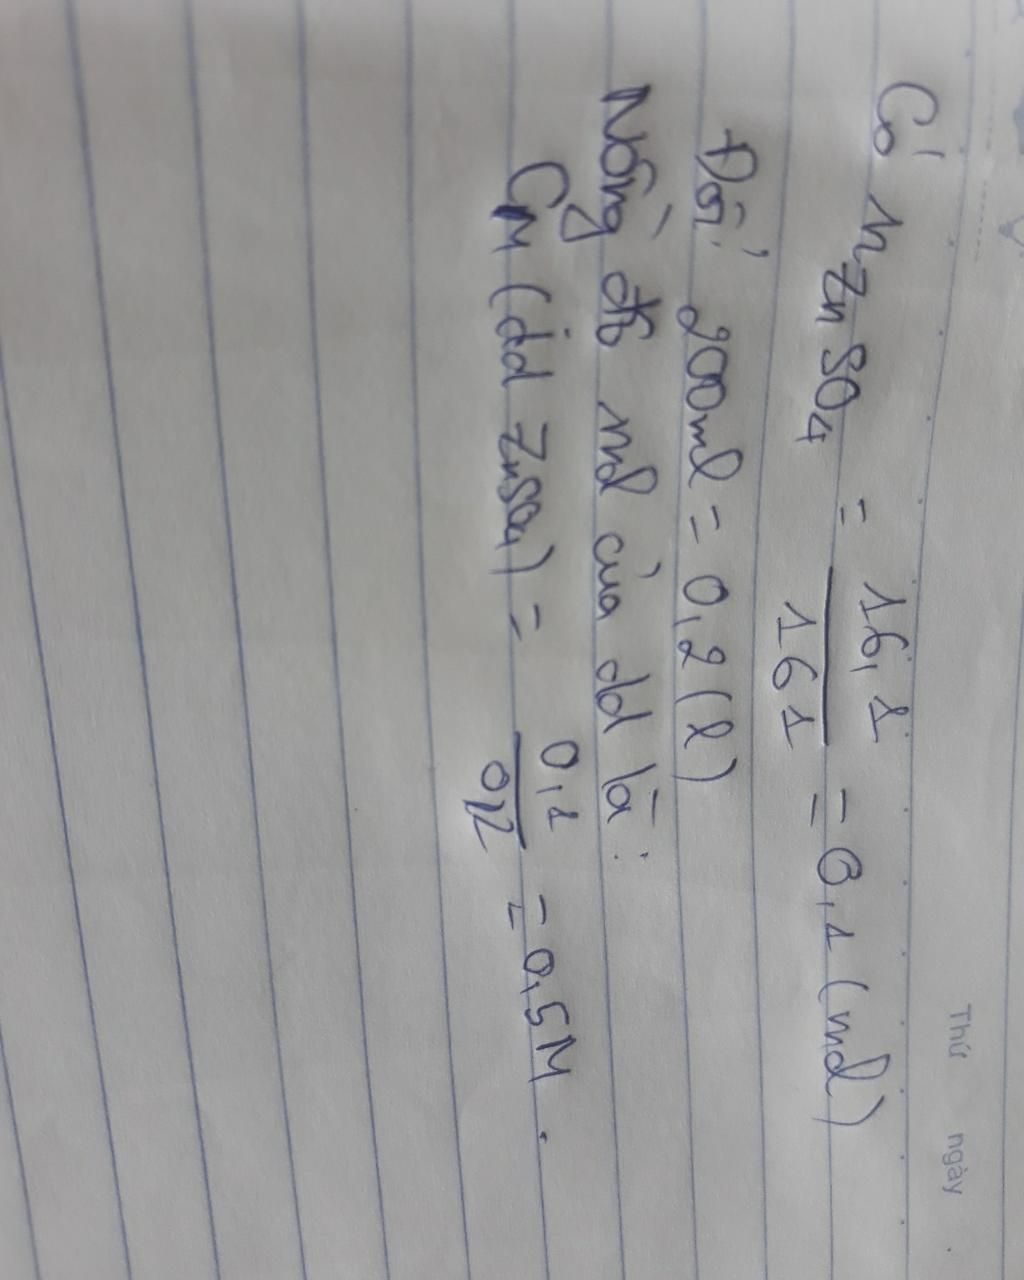 Thứ ngày .
Có n ZnSO4 = 16,1 / 161 = 0,1 (mol)
Đổi: 200ml = 0,2 (l)
Nồng độ mol của dd là:
CM (dd ZnSO4) = 0,1 / 0,2 = 0,5M .